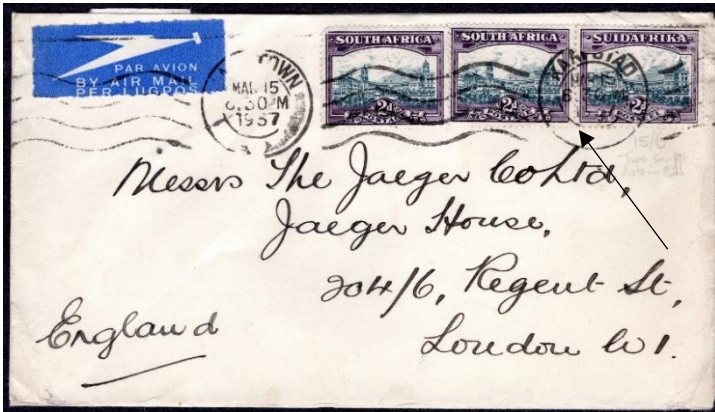 PAR AVION
BY AIR MAIL
PER LUGPOS
TOWN
MAR 15
6.30PM
1937
SOUTH AFRICA
2d
POSTAGE
SOUTH AFRICA
2d
POSTAGE
SUIDAFRIKA
2d
KAAPSTAD
15/6
Messrs The Jaeger Co Ltd,
Jaeger House,
204/6, Regent St,
London W1.
England